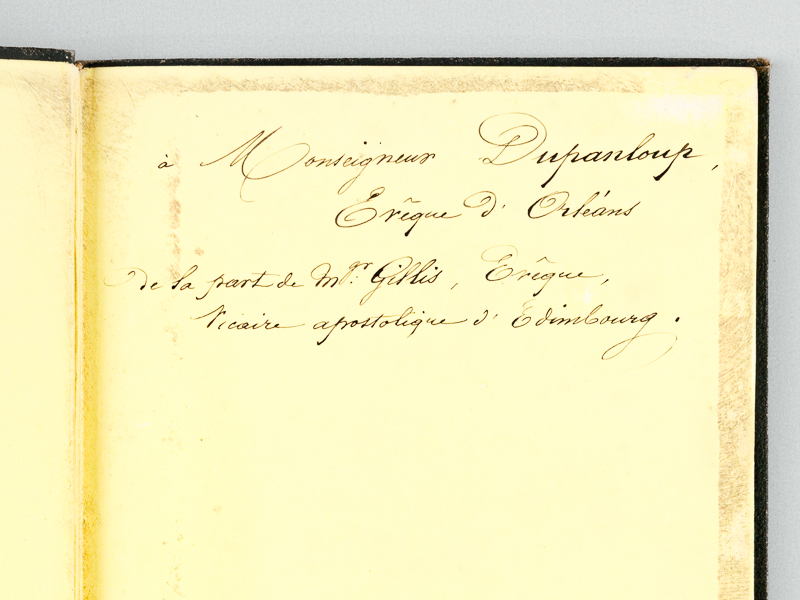 à Monseigneur Dupanloup,
Evêque d' Orléans
de la part de Mgr. Gillis, Evêque,
Vicaire apostolique d' Edimbourg.